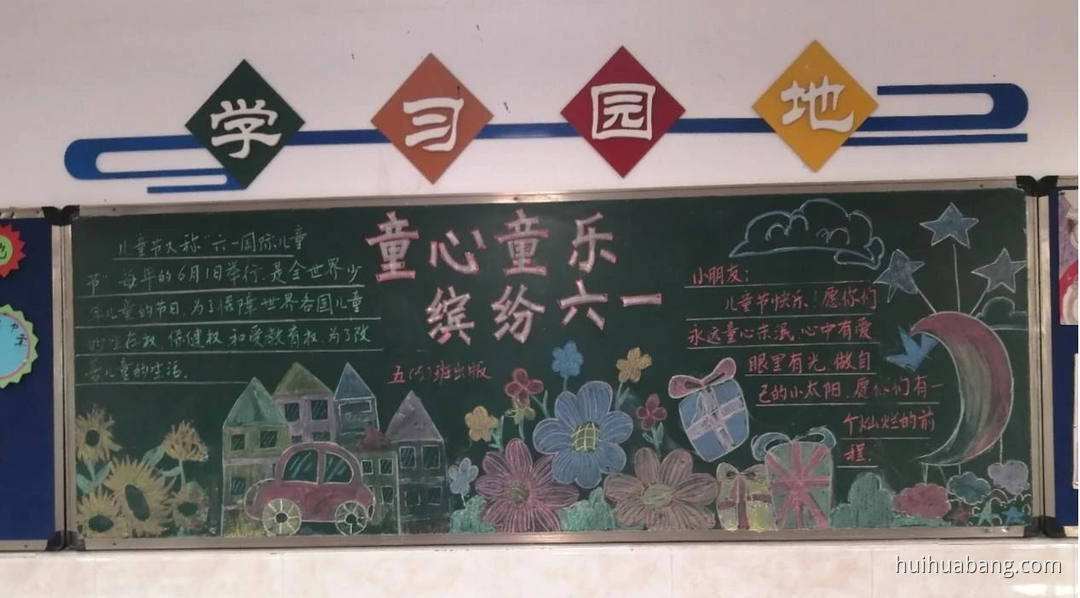 学习园地
童心童乐
缤纷六一
五(3)班出版
儿童节又称"六一国际儿童
节"每年的6月1日举行.是全世界少
年儿童的节日,为了保障世界各国儿童
的生存权.保健权和受教育权.为了改
善儿童的生活.
小朋友:
儿童节快乐!愿你们
永远童心未泯.心中有爱
眼里有光.做自
己的小太阳.愿你们有一
个灿烂的前
程.
huihuabang.com